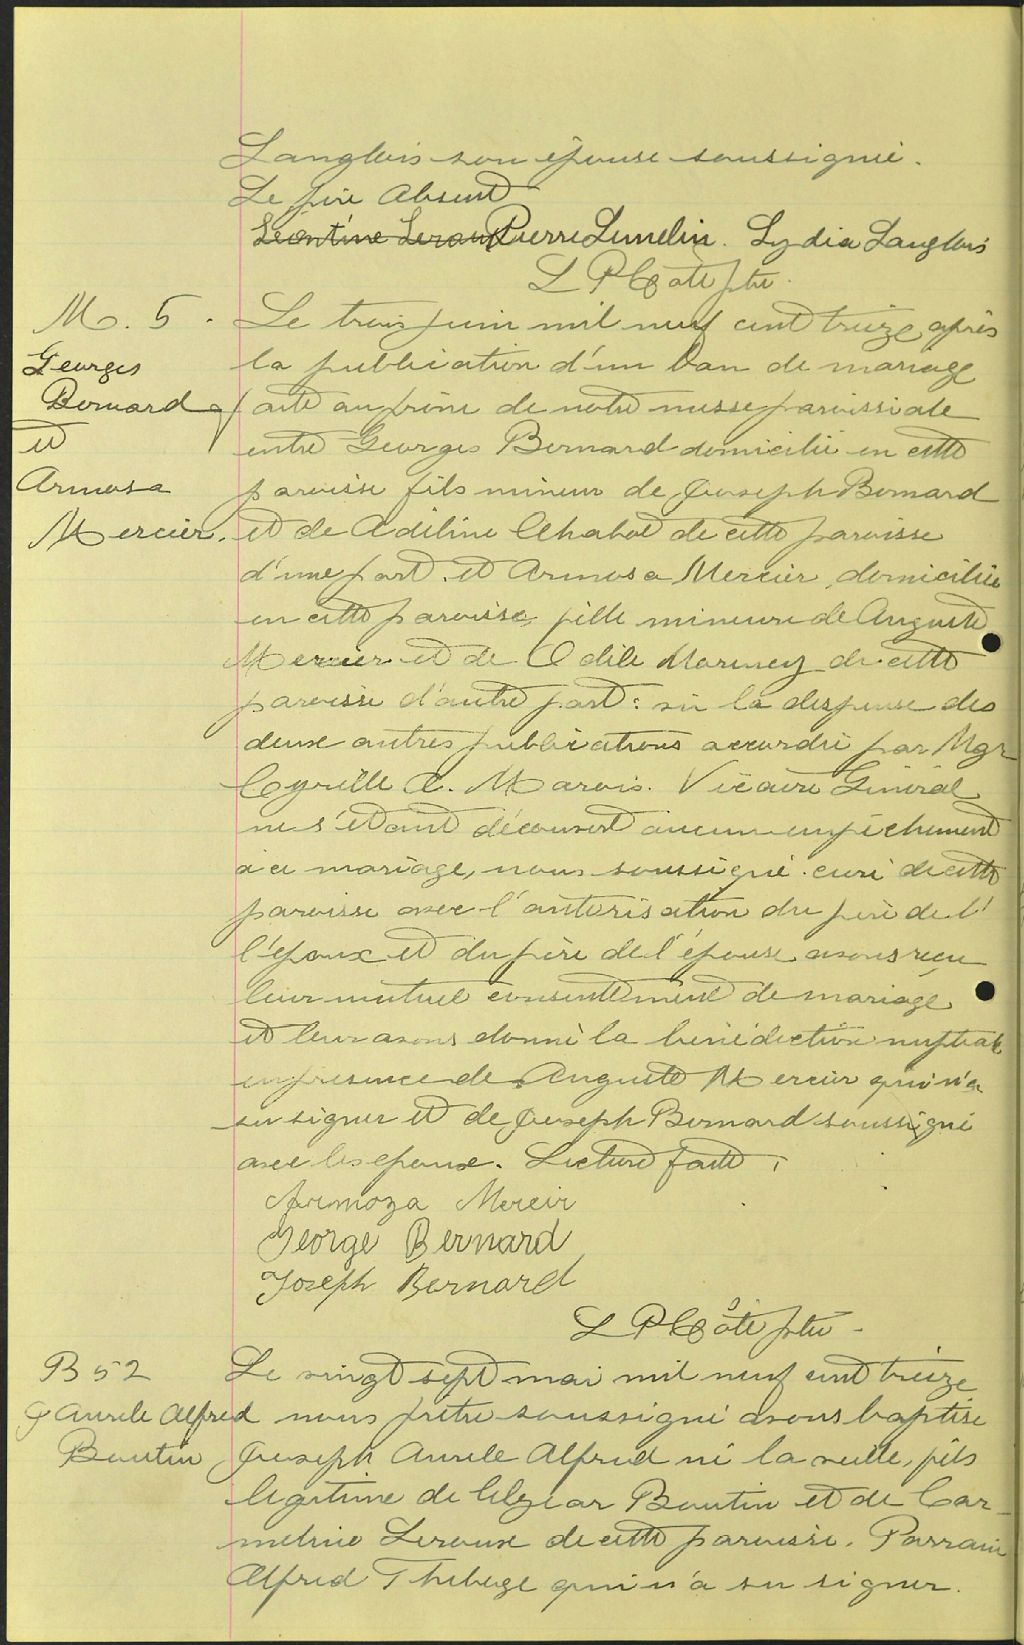 Langlois son épouse soussignée.
Le père absent
Léontine Leroux Pierre Lumelin. Lydia Langlois
L P Côté ptre.
M. 5.
Georges
Bernard
et
Armosa
Mercier.
Le trois juin mil neuf cent treize après
la publication d'un ban de mariage
faite au prône de notre messe paroissiale
entre Georges Bernard domicilié en cette
paroisse fils mineur de Joseph Bernard
et de Adeline Chabot de cette paroisse
d'une part, et Armosa Mercier, domiciliée
en cette paroisse, fille mineure de Auguste
Mercier et de Odile de cette
paroisse d'autre part: vu la dispense des
deux autres publications accordée par Mgr
Cyrille A. Marois. Vicaire Général
ne s'étant découvert aucun empêchement
à ce mariage, nous soussigné curé de cette
paroisse avec l'autorisation du père de l'
l'époux et du père de l'épouse avons reçu
leur mutuel consentement de mariage
et leur avons donné la bénédiction nuptiale
en présence de Auguste Mercier qui n'a
su signer et de Joseph Bernard soussigné
avec les époux. Lecture faite.
Armoza Mercir
George Bernard
Joseph Bernard
L P Côté ptre.
B 52
J Aurele Alfred
Boutin
Le vingt sept mai mil neuf cent treize
nous prêtre soussigné avons baptisé
Joseph Aurele Alfred né la veille, fils
légitime de Elzear Boutin et de Car-
meline Leroux de cette paroisse. Parrain
Alfred Thiberge qui n'a su signer.